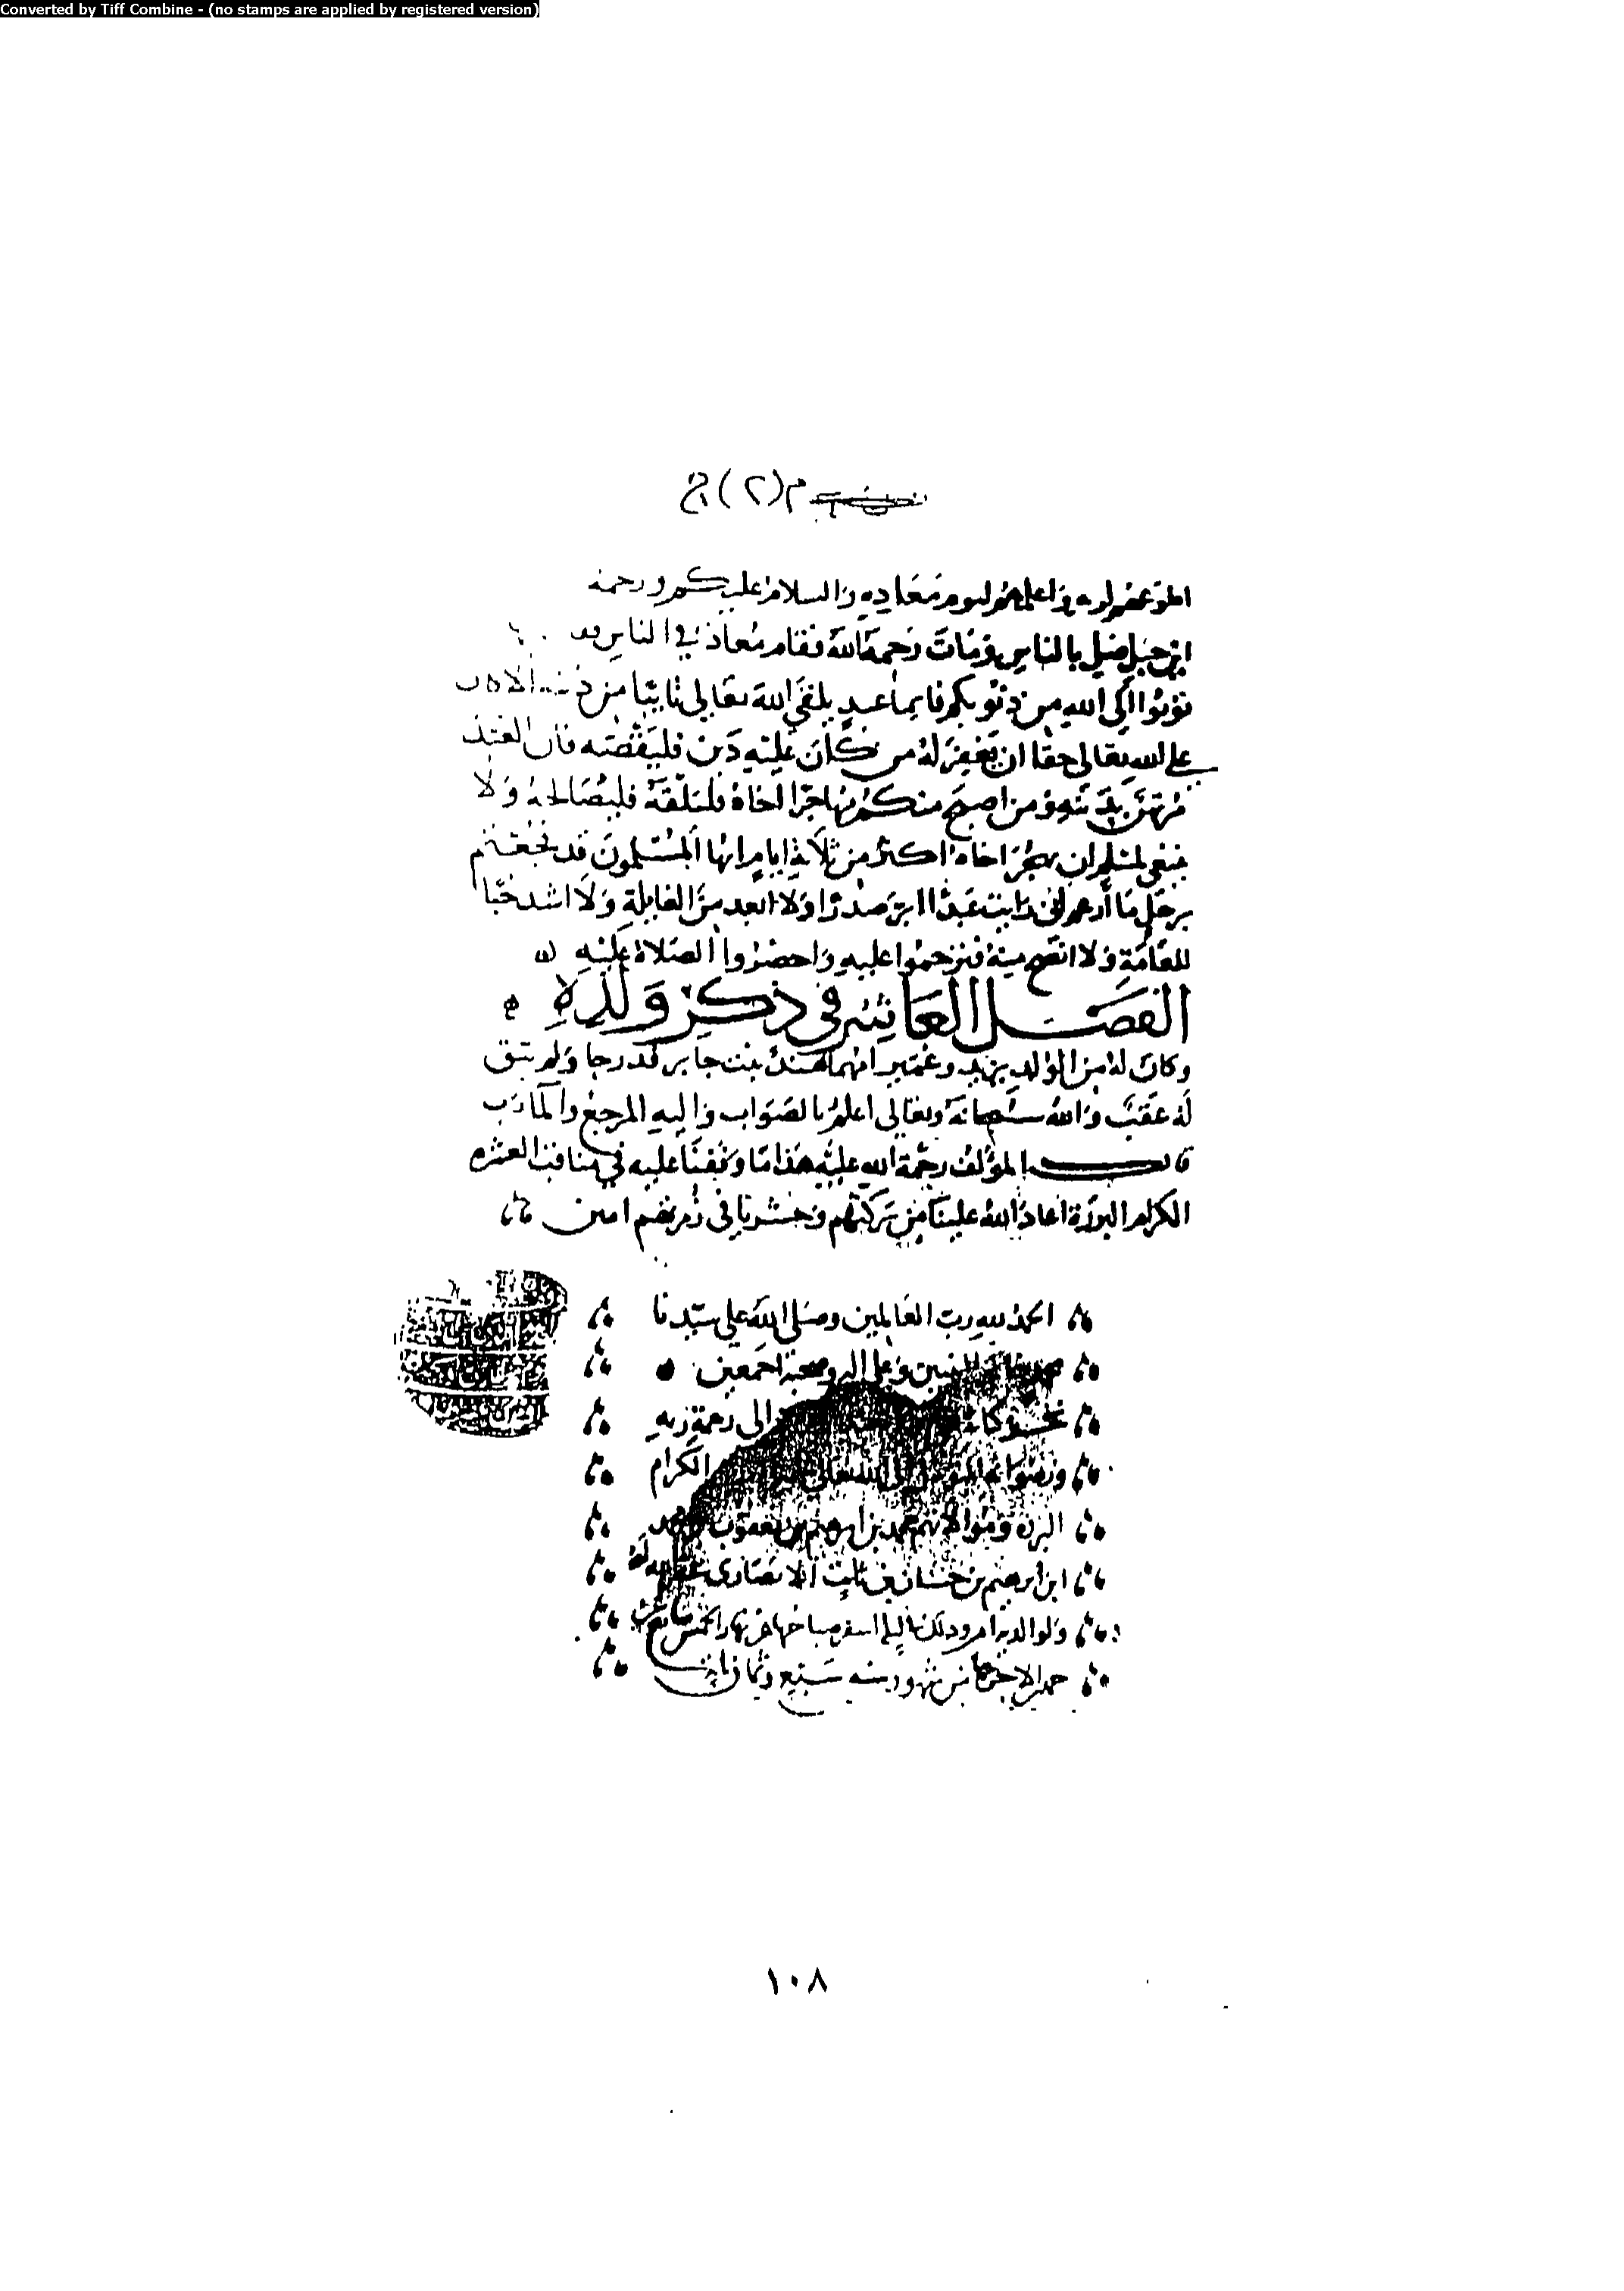 Converted by Tiff Combine - (no stamps are applied by registered version)
م (٢) ج
اطوعهم لربه واعلمهم ليوم معاده والسلام عليكم ورحمة
ابن جبل صل بالناس ومات رحمه الله فقام معاذ في الناس
توبوا الى الله من ذنوبكم فايما عبد يلقى الله تعالى تائبا من ذنبه الا كان
على الله تعالى حقا ان يغفر له من كان عليه دين فليقضه فان العبد
مرتهن بدينه ومن اصبح منكم مهاجرا اخاه فليلقه فليصالحه ولا
ينبغي لمسلم ان يهجر اخاه اكثر من ثلاثة ايام ايها المسلمون قد فجعتم
برجل ما ازعم اني رايت عبدا ابر صدرا ولا ابعد من الغايلة ولا اشد حبا
للعامة ولا انصح منه فترحموا عليه واحضروا الصلاة عليه
الفصل العاشر في ذكر ولده
وكان له من الولد يزيد وعمير امهما هند بنت جابر فدرجا ولم يبق
له عقب والله سبحانه وتعالى اعلم بالصواب واليه المرجع والمآب
قال المؤلف رحمة الله عليه هذا ما وقفنا عليه في مناقب العشره
الكرام البررة اعاد الله علينا من بركتهم وحشرنا في زمرتهم امين
الحمد لله رب العالمين وصلى الله على سيدنا
محمد خاتم النبيين وعلى اله وصحبه اجمعين
الى رحمة ربه
ورضوانه المتوسل الى الله تعالى الكرام
البرره وموالاتهم محمد بن ابرهيم بن يعقوب
ابن ابرهيم بن حسان بن ثابت الانصاري غفر الله له
ولوالديه امين وذلك اسفر صباحها عن نهار الخميس
من شهور سنه سبع وثمانين
١٠٨